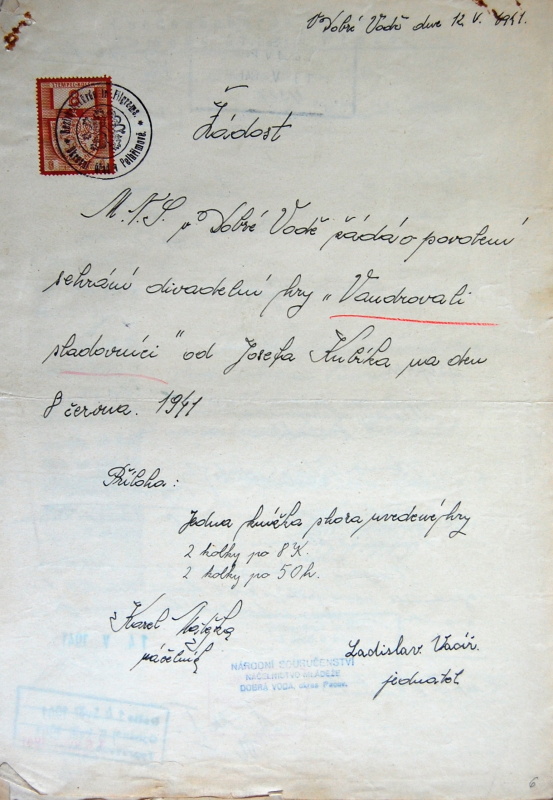 V Dobré Vodě dne 12. V. 1941.
Žádost
M.N.S. v Dobré Vodě žádá o povolení
sehrání divadelní hry „Vandrovali
sladovníci" od Josefa Kubíka na den
8 června. 1941
Příloha:
Jedna knížka shora uvedené hry
2 kolky po 8 K.
2 kolky po 50 h.
Karel
náčelník
NÁRODNÍ SOURUČENSTVÍ
NÁČELNICTVO MLÁDEŽE
DOBRÁ VODA, okres Pelhř.
Ladislav Vacíř.
jednatel
6